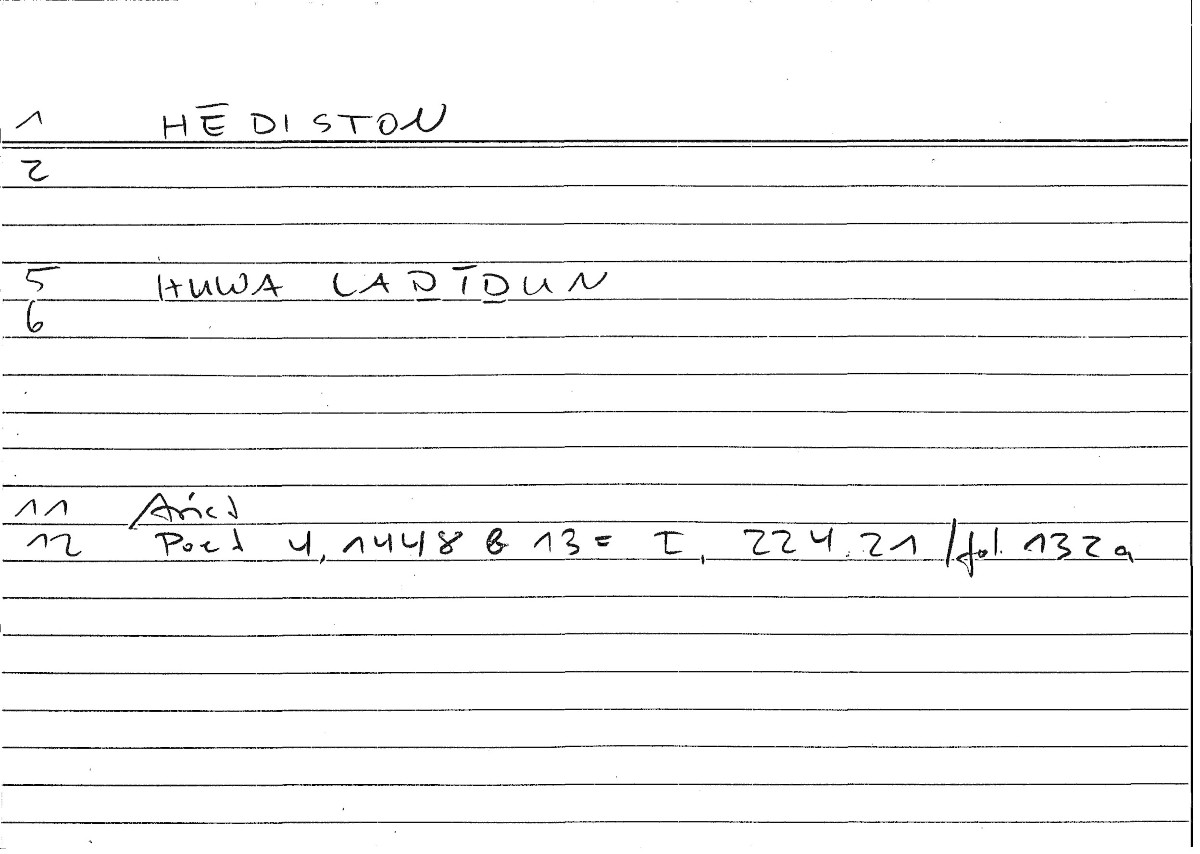 1 HĒDISTON
2
5 HUWA LAḎĪḎUN
6
11 Arist
12 Poet 4, 1448 b 13 = I, 224.21 / fol. 132a